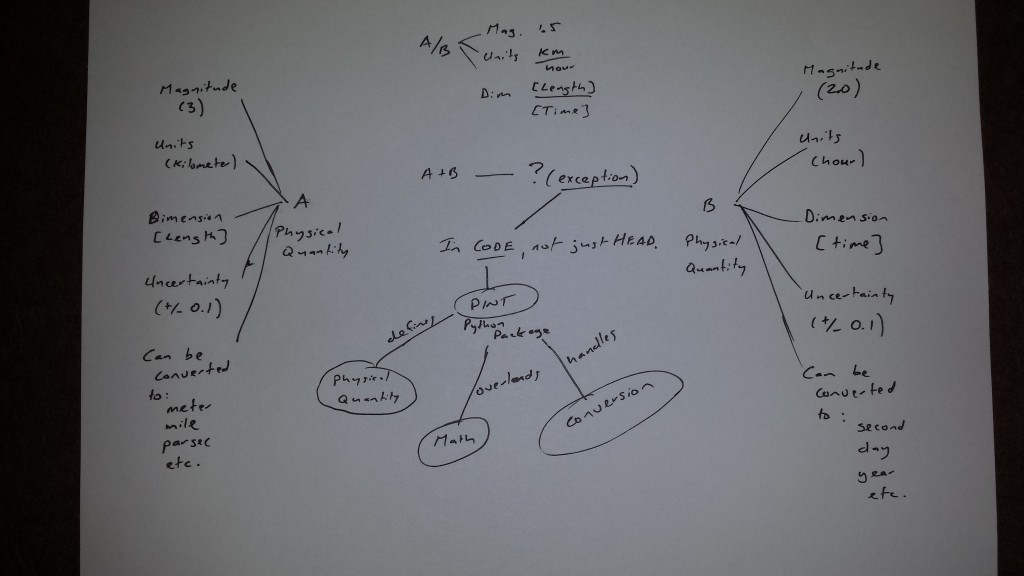 A/B
Mag. 1.5
Units km
hour
Dim [Length]
[Time]
Magnitude
(3)
Units
(kilometer)
Dimension
[Length]
Uncertainty
(+/- 0.1)
Can be
converted
to:
meter
mile
parsec
etc.
A
Physical
Quantity
A+B
? (exception)
In CODE, not just HEAD.
PINT
Python
Package
defines
Physical
Quantity
overloads
Math
handles
Conversion
Magnitude
(20)
Units
(hour)
Dimension
[time]
Uncertainty
(+/- 0.1)
Can be
converted
to:
second
day
year
etc.
B
Physical
Quantity